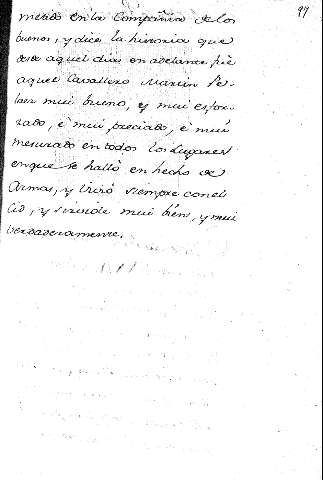 99
metido en la Compañia de los
buenos, y dice la historia que
desde aquel dia en adelante fúe
aquel Cavallero Martin Pe-
laez mui bueno, y mui esfor-
zado, è mui preciado, è mui
mesurado en todos los Lugares
en que se hallò en hecho de
Armas, y vivió siempre con el
Cid, y sirviòle mui bien, y mui
verdaderamente.